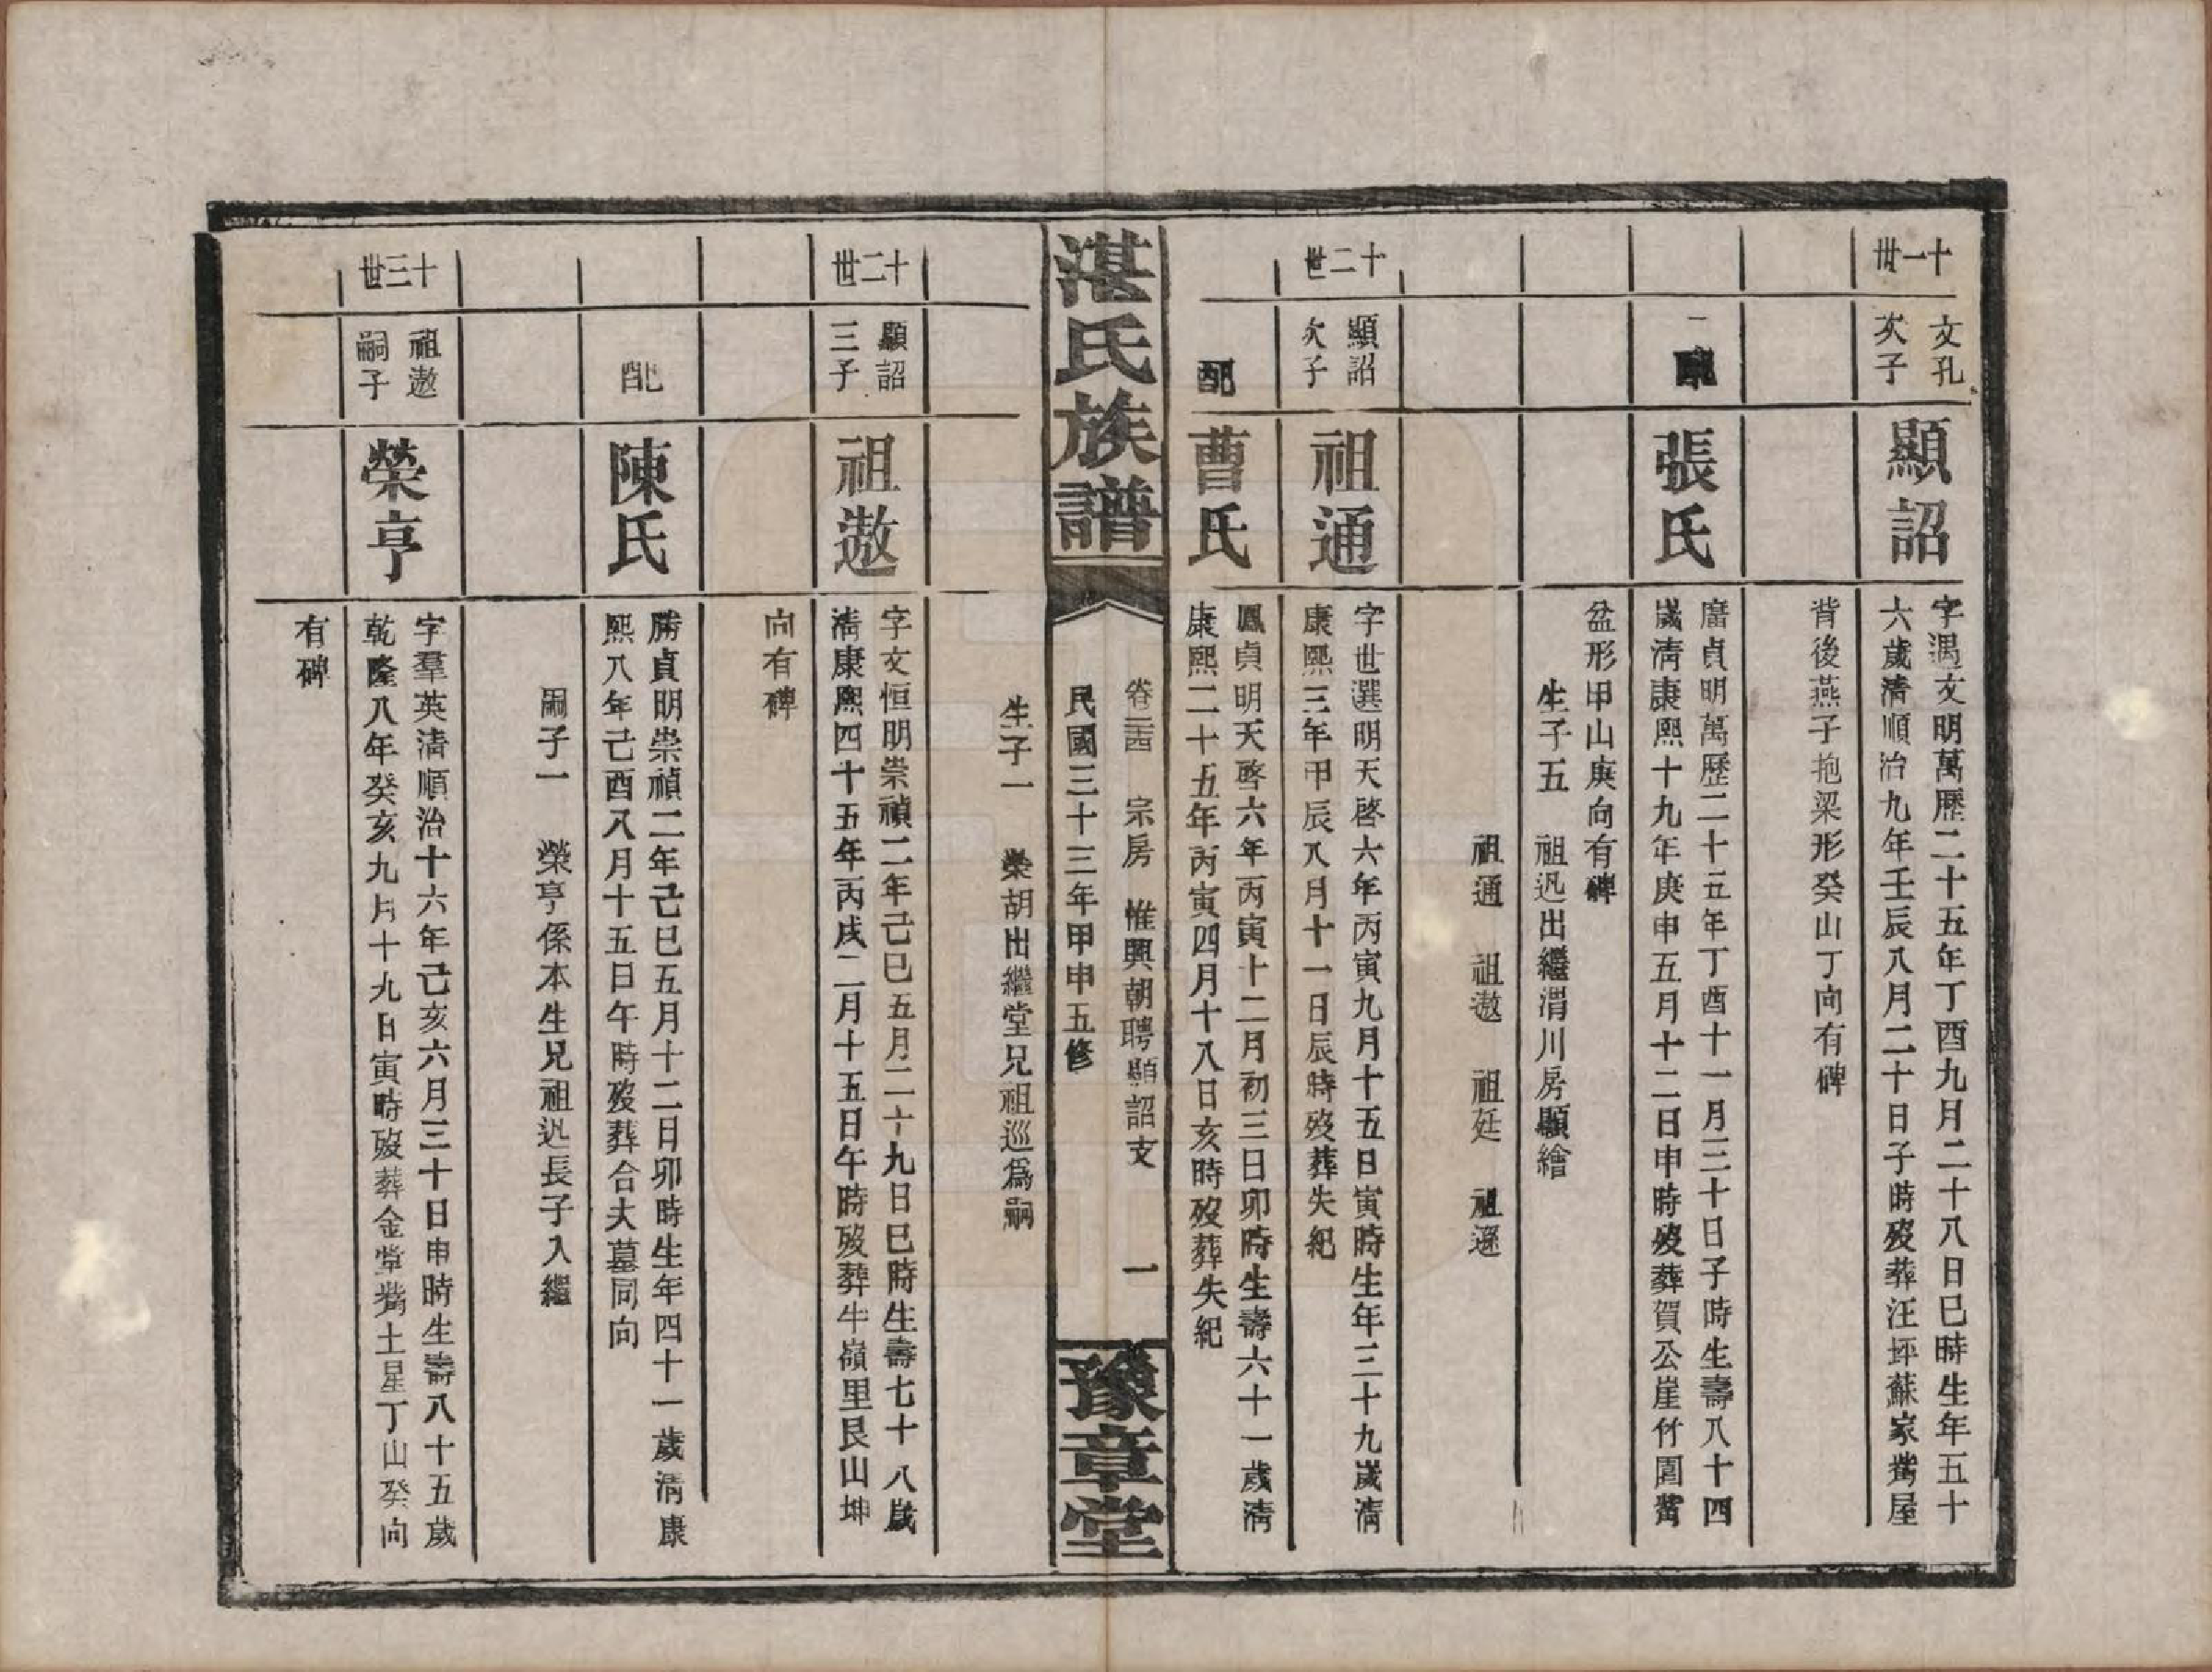 十一世
文孔
次子
顯詔
字遇文明萬歷二十五年丁酉九月二十八日巳時生年五十
六歲清順治九年壬辰八月二十日子時歿葬汪坪蘇家嘴屋
背後燕子抱梁形癸山丁向有碑
一配
張氏
廣貞明萬歷二十五年丁酉十一月三十日子時生壽八十四
歲清康熙十九年庚申五月十二日申時歿葬賀公崖竹園嘴
盆形甲山庚向有碑
生子五 祖汎出繼渭川房顯繪
祖通 祖遨 祖廷 祖遜
十二世
顯詔
次子
祖通
字世選明天啓六年丙寅九月十五日寅時生年三十九歲清
康熙三年甲辰八月十一日辰時歿葬失紀
配
曹氏
鳳貞明天啓六年丙寅十二月初三日卯時生壽六十一歲清
康熙二十五年丙寅四月十八日亥時歿葬失紀
湛氏族譜
卷二酉 宗房 惟興朝聘顯詔支 一
民國三十三年甲申五修
豫章堂
生子一 榮胡出繼堂兄祖巡爲嗣
十二世
顯詔
三子
祖遨
字文恒明崇禎二年己巳五月二十九日巳時生壽七十八歲
清康熙四十五年丙戌二月十五日午時歿葬牛嶺里艮山坤
向有碑
配
陳氏
勝貞明崇禎二年己巳五月十二日卯時生年四十一歲清康
熙八年己酉八月十五日午時歿葬合夫墓同向
嗣子一 榮亨係本生兄祖汎長子入繼
十三世
祖遨
嗣子
榮亨
字羣英清順治十六年己亥六月三十日申時生壽八十五歲
乾隆八年癸亥九月十九日寅時歿葬金堂嘴土星丁山癸向
有碑